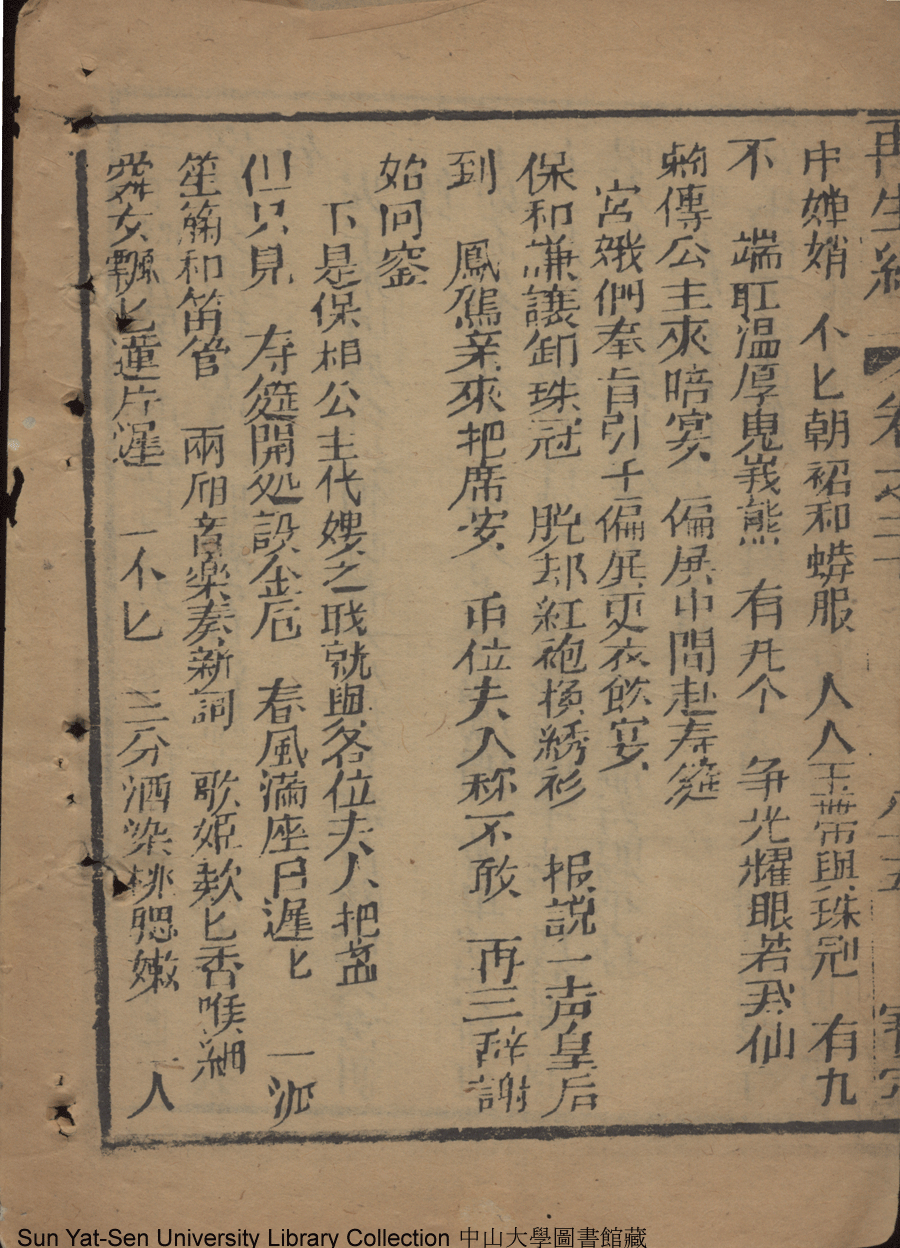 再生緣 卷之三
中嬋娟 个匕朝裙和蟒服 人人玉帶與珠冠 有九
不 端肛温厚鬼峩熊 有九个 爭光耀眼若天仙
勑傳公主來暗宴 偏展中間赴寿筵
宮娥們奉旨引于偏展更衣飲宴
保和謙讓卸珠冠 脫却紅袍換綉衫 报説一声皇后
到 鳳鳥亲來把席安 而位夫人称不敢 再三辞謝
始回窒
下是保相公主代嫂之戝就與各位夫人把盃
但只見 寿筵開処設金卮 春風滿座日遲匕 一派
笙簫和笛管 兩廂音楽奏新詞 歌姬欵匕香喉細
舞女飄匕蓮片遲 一个匕 三分酒染桃腮嫩 一人
Sun Yat-Sen University Library Collection 中山大學圖書館藏